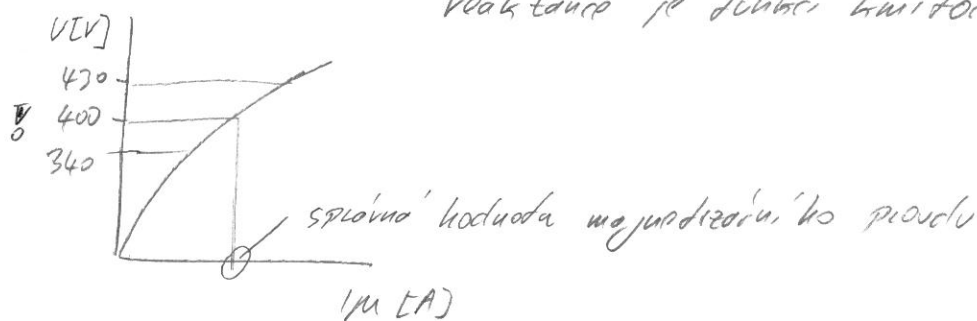 reaktance je funkcí kmitoč
U[V]
430
400
340
správná hodnota magnetizačního proudu
Iμ [A]